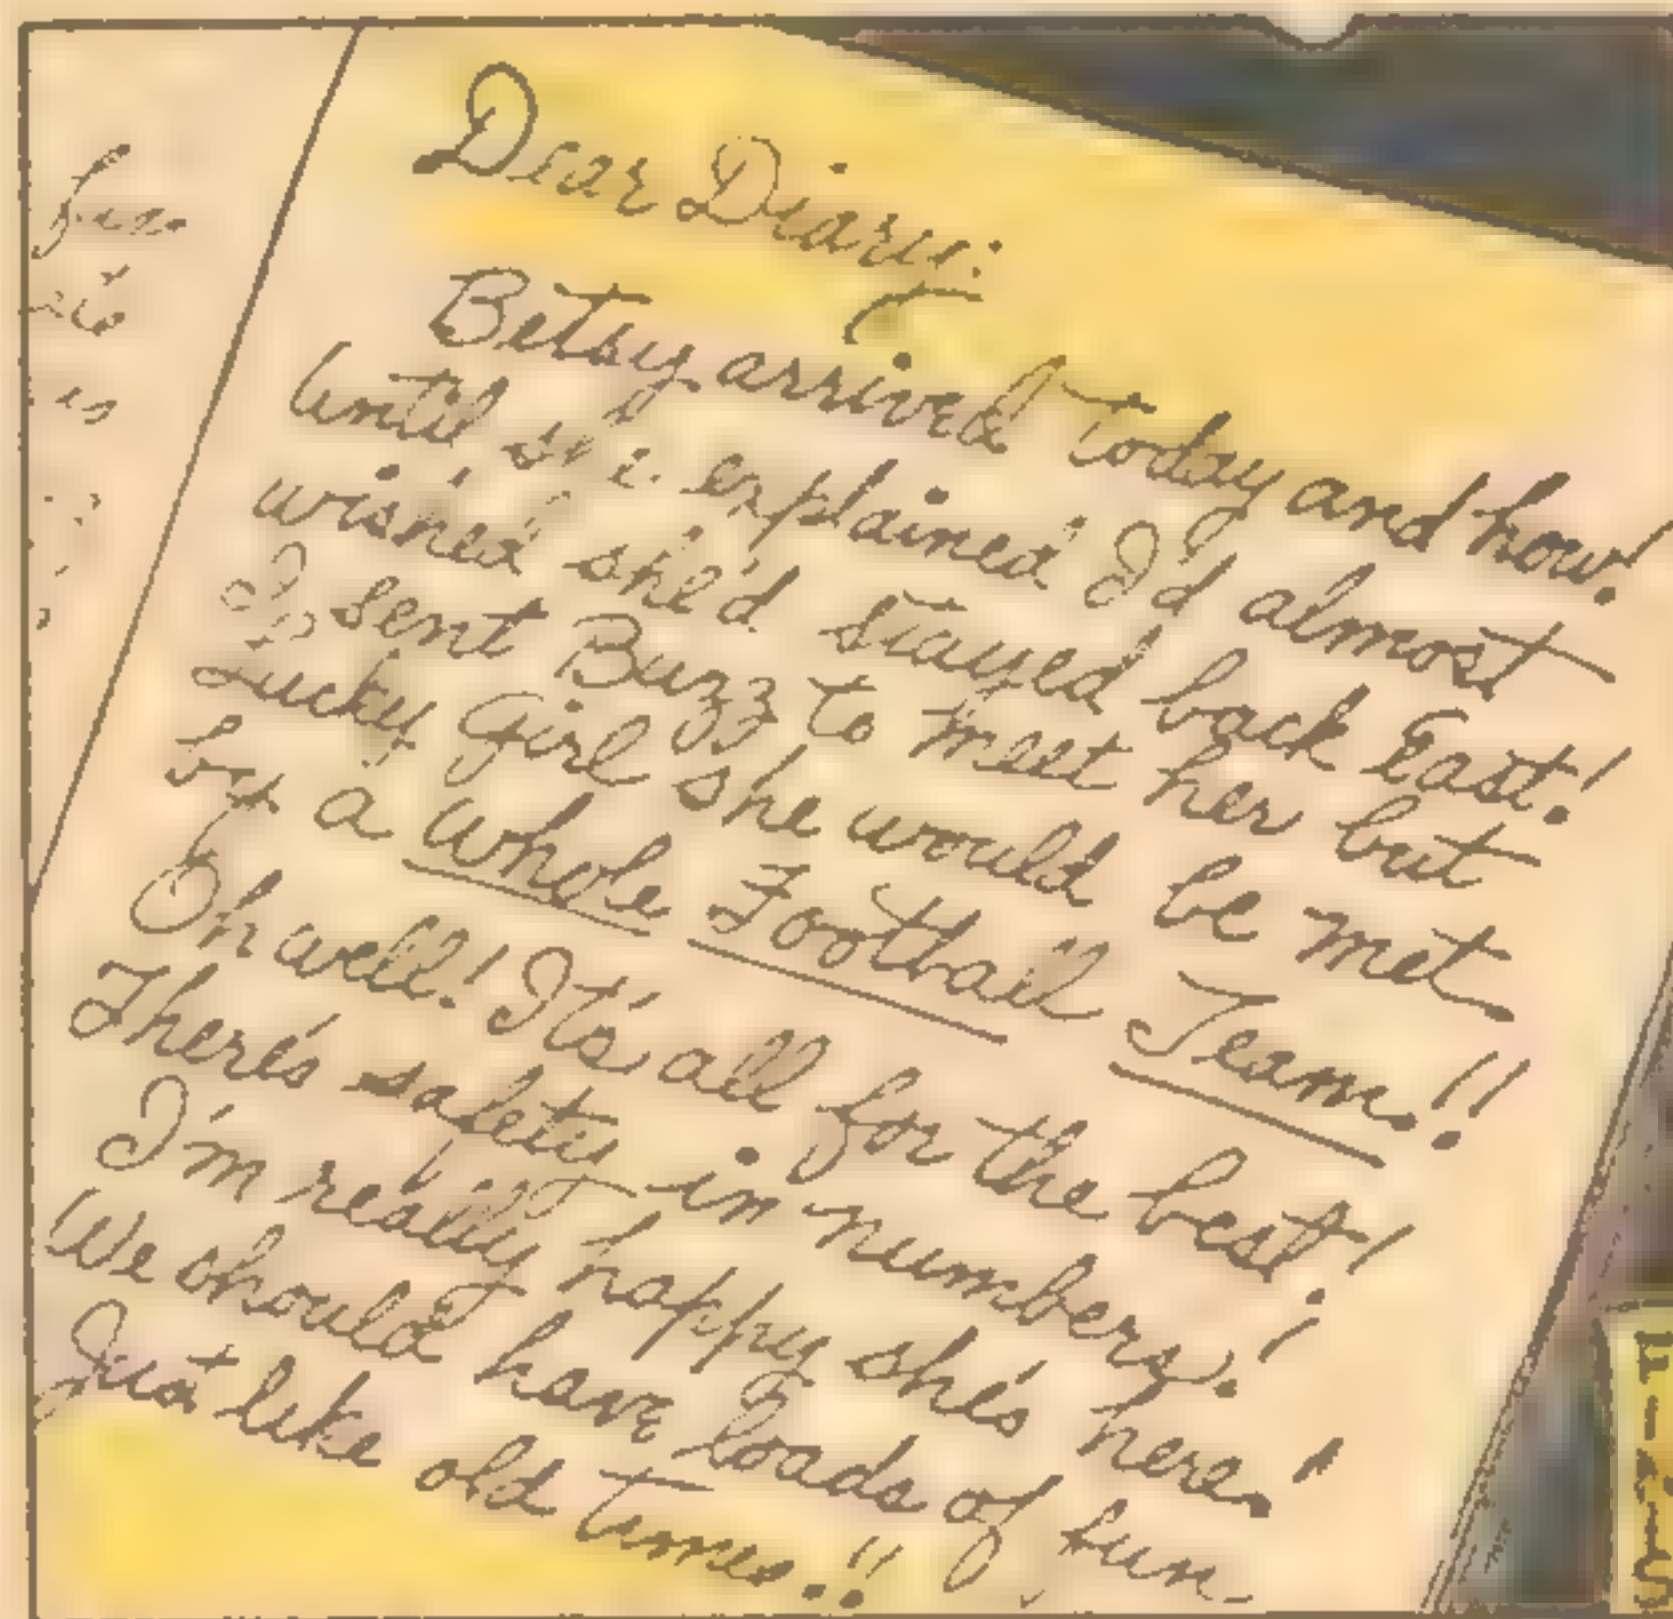 Dear Diary:
Betsy arrived today and how!
Until she explained I'd almost
wished she'd stayed back East!
I sent Buzz to meet her but
Lucky Girl she would be met
by a whole Football Team!!
Oh well! It's all for the best!
There's safety in numbers!
I'm really happy she's here!
We should have loads of fun
Just like old times!!
fun